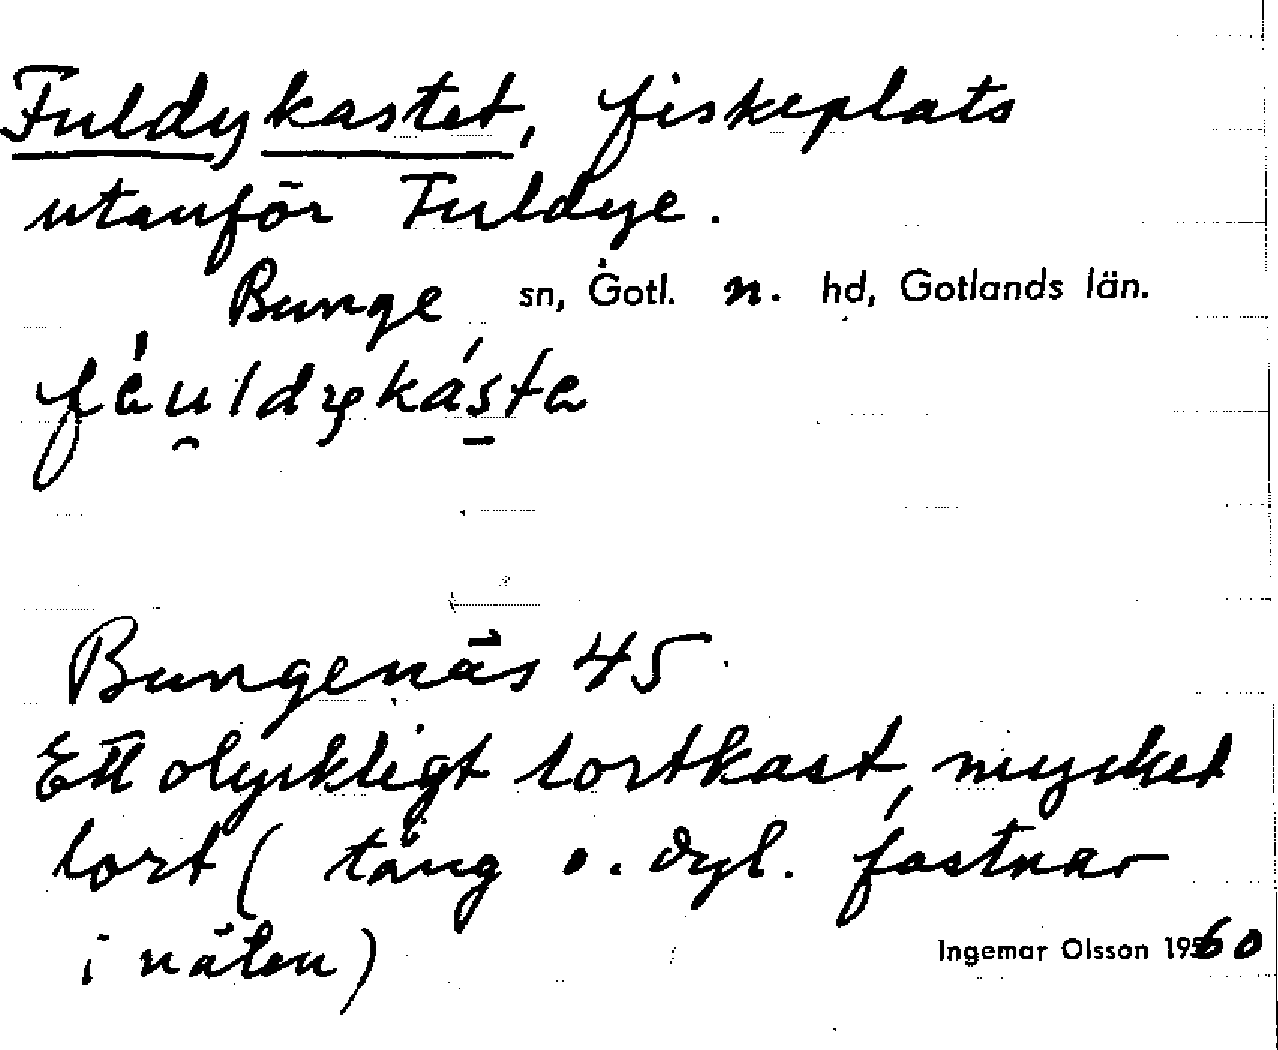 Fuldykastet, fiskeplats
utanför Fuldye.
Bunge sn, Gotl. n. hd, Gotlands län.
Bungenäs 45
Ett olyckligt lortkast, mycket
lort (tång o. dyl. fastnar
i näten)
Ingemar Olsson 1960